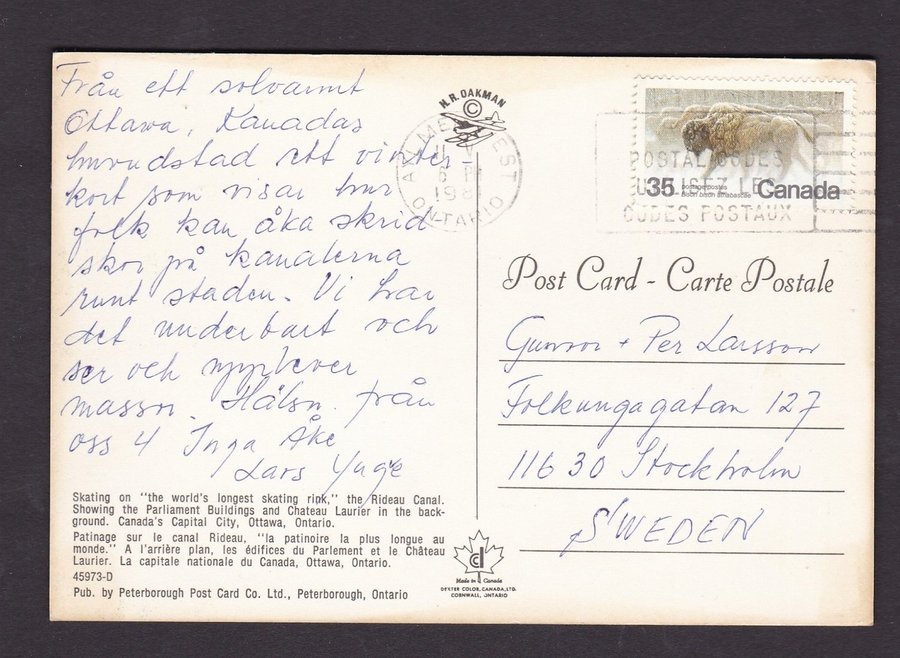 Från ett solvarmt
Ottawa, Kanadas
huvudstad ett vinter-
kort som visar hur
folk kan åka skrid
skor på kanalerna
runt staden. Vi har
det underbart och
ser och upplever
massor. Hälsn. från
oss 4 Inga Åke
Lars Yngve
Skating on "the world's longest skating rink," the Rideau Canal.
Showing the Parliament Buildings and Chateau Laurier in the back-
ground. Canada's Capital City, Ottawa, Ontario.
Patinage sur le canal Rideau, "la patinoire la plus longue au
monde." A l'arrière plan, les édifices du Parlement et le Château
Laurier. La capitale nationale du Canada, Ottawa, Ontario.
45973-D
Pub. by Peterborough Post Card Co. Ltd., Peterborough, Ontario
H.R. OAKMAN
©
ONTARIO
POSTAL CODES
UTILISEZ LES
CODES POSTAUX
35 postage postes Canada
bison bison athabascae
Post Card - Carte Postale
Gunnor + Per Larsson
Folkungagatan 127
116 30 Stockholm
SWEDEN
cd
Made in Canada
DEXTER COLOR, CANADA, LTD.
CORNWALL, ONTARIO